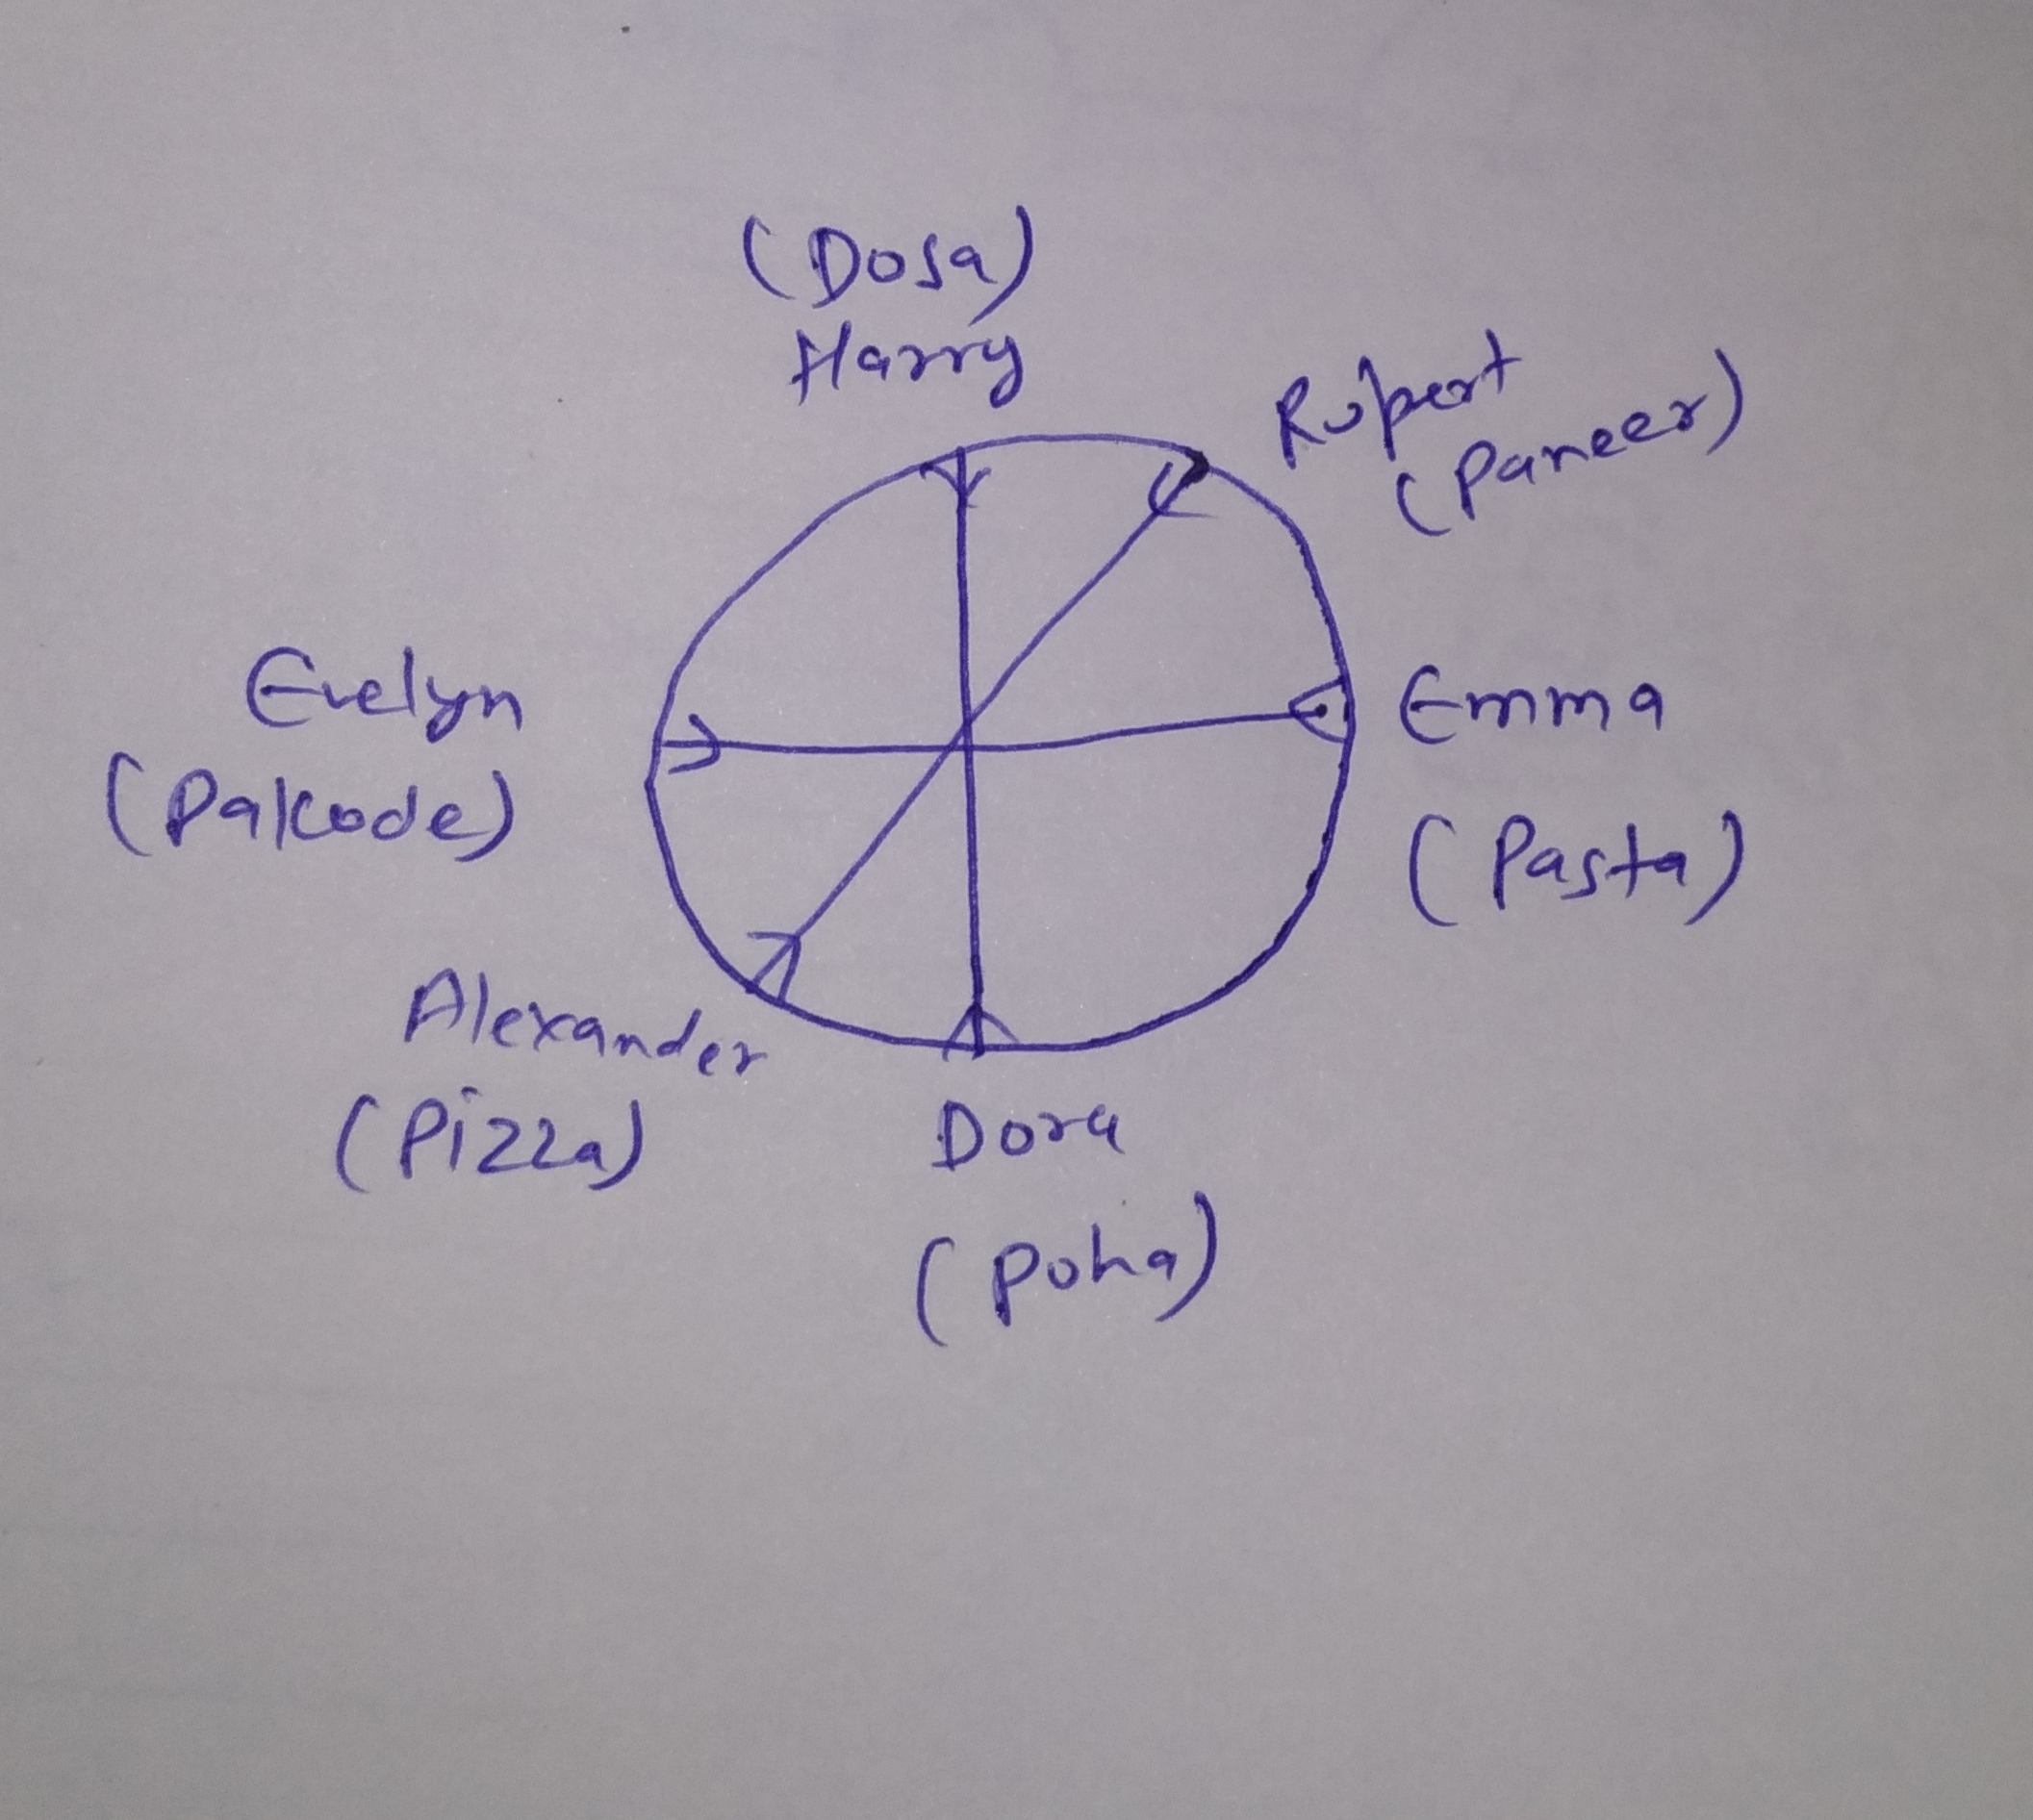 (Dosa)
Harry
Rupert
(Paneer)
Evelyn
(Pakode)
Emma
(Pasta)
Alexander
(Pizza)
Dora
(Poha)